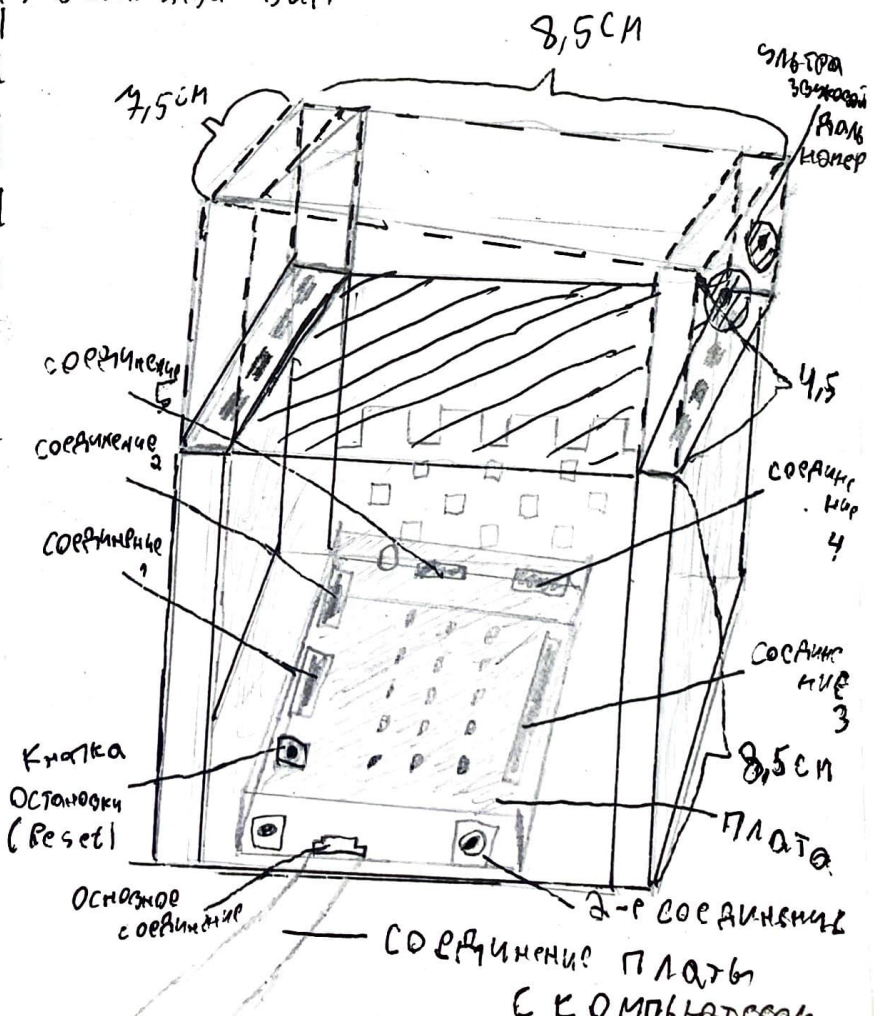 8,5 см
7,5 см
Ультра
звуковой
даль
номер
4,5
соединение
соединение
2
соединение
1
соедине
ние
4
соедине
ние
3
8,5 см
Кнопка
остановки
(Reset)
плата
Основное
соединение
2-е соединение
соединение платы
с компьютером